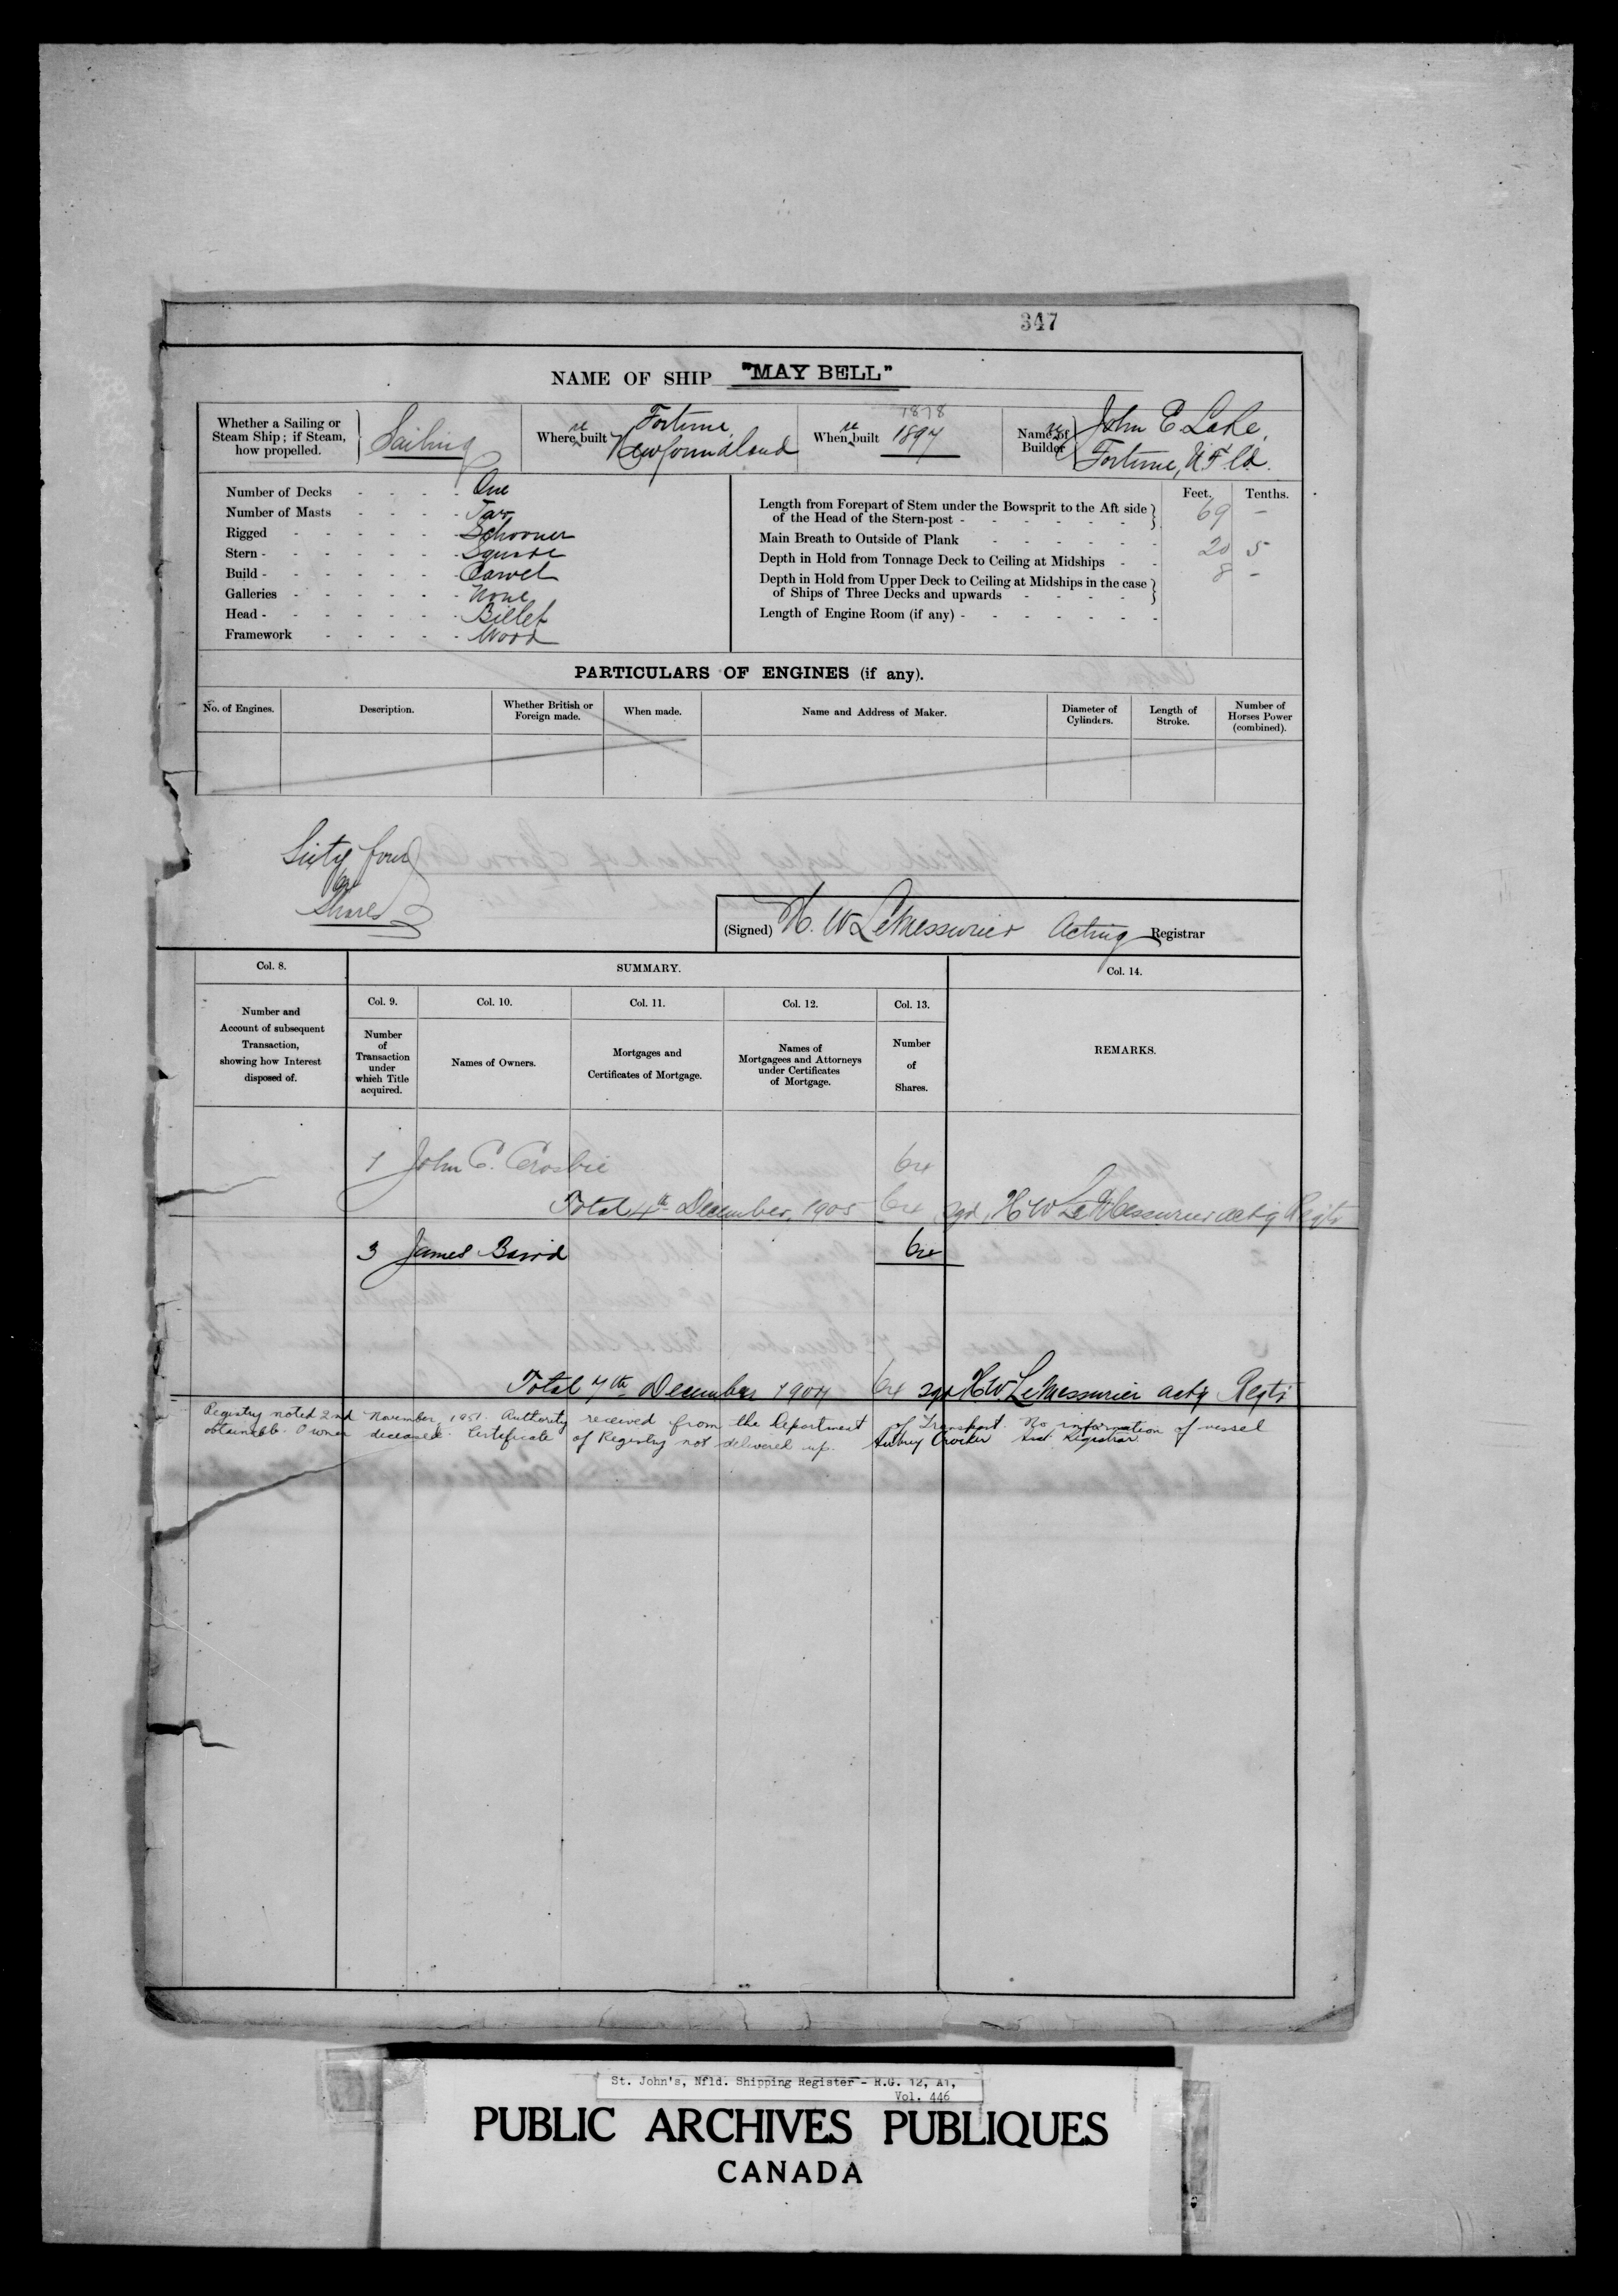 347
NAME OF SHIP "MAY BELL"
Whether a Sailing or
Steam Ship; if Steam,
how propelled.
Sailing
Where re built
Fortune,
Newfoundland
When re built
1878
1897
Name of re
Builder
John E Lake,
Fortune, N.F.ld.
Number of Decks - - - - One
Number of Masts - - - - Two
Rigged - - - - - - Schooner
Stern - - - - - - - Square
Build - - - - - - - Carvel
Galleries - - - - - - None
Head - - - - - - - Billet
Framework - - - - - Wood
Feet. Tenths.
Length from Forepart of Stem under the Bowsprit to the Aft side
of the Head of the Stern-post - - - - - - 69 -
Main Breath to Outside of Plank - - - - - 20 5
Depth in Hold from Tonnage Deck to Ceiling at Midships - - 8 -
Depth in Hold from Upper Deck to Ceiling at Midships in the case
of Ships of Three Decks and upwards - - - -
Length of Engine Room (if any) - - - - - -
PARTICULARS OF ENGINES (if any).
No. of Engines.
Description.
Whether British or
Foreign made.
When made.
Name and Address of Maker.
Diameter of
Cylinders.
Length of
Stroke.
Number of
Horses Power
(combined).
Sixty four
64
Shares
(Signed) H. W LeMessurier Acting Registrar
Col. 8.
SUMMARY.
Col. 14.
Number and
Account of subsequent
Transaction,
showing how Interest
disposed of.
Col. 9.
Number
of
Transaction
under
which Title
acquired.
Col. 10.
Names of Owners.
Col. 11.
Mortgages and
Certificates of Mortgage.
Col. 12.
Names of
Mortgagees and Attorneys
under Certificates
of Mortgage.
Col. 13.
Number
of
Shares.
REMARKS.
1 John C. Crosbie 64
Total 4th December, 1905 64 sgd, H W LeMessurier actg Regtr
3 James Baird 64
Total 7th December 1907 64 sgd HW LeMessurier actg Regtr
Registry noted 2nd November, 1951. Authority received from the Department of Transport. No information of vessel
obtainable. Owner deceased. Certificate of Registry not delivered up. Aubrey Crocker Asst. Registrar
St. John's, Nfld. Shipping Register - R.G. 12, A1,
Vol. 446
PUBLIC ARCHIVES PUBLIQUES
CANADA